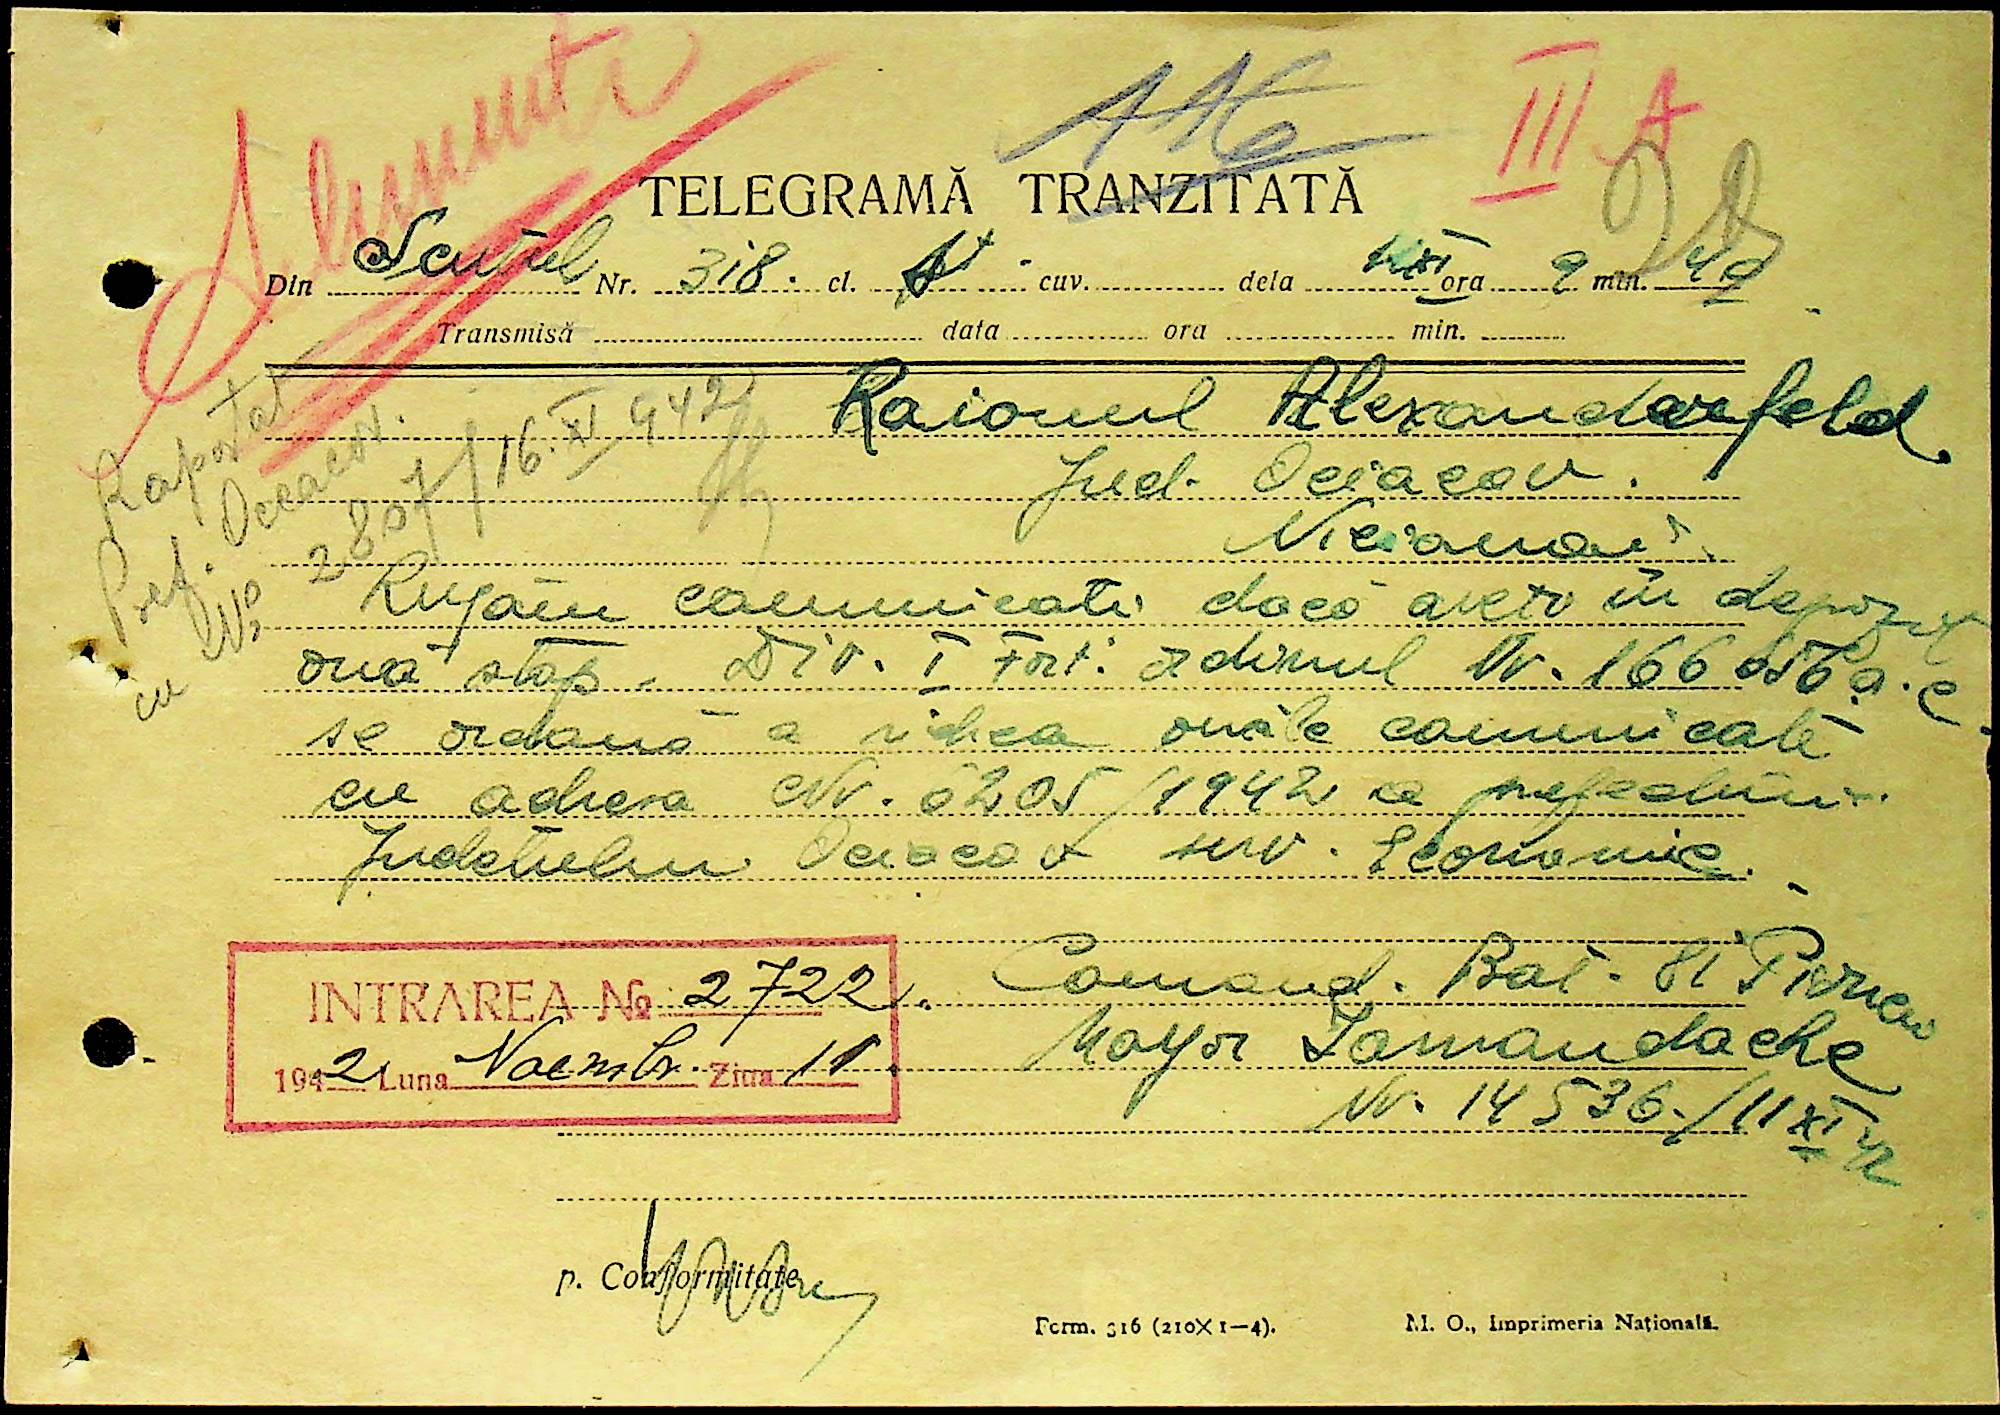 III A
TELEGRAMĂ TRANZITATĂ
Din Scutul Nr. 318. cl. At. cuv. dela XI ora 9 min. 40
Transmisă data ora min.
Raportat
Pref. Oceacov.
cu No 2807/16.XI 942
Raionul Alexanderfeld
Jud. Ociacov.
Rugăm comunicati dacă aveti în depozit
ouă stop. Div. I Fort. ordinul Nr. 166056 a.c.
se ordonă a ridica ouăle comunicate
cu adresa Nr. 6205/1942 a prefecturii
Judetului Ociacov serv. Economic.
INTRAREA № 2722
1942 Luna Noembr. Ziua 11
Comand. Bat. 81 Pionieri
Mayor Tamandache
Nr. 14536./11 XI 42
p. Conformitate
Form. 316 (210X1—4).
M. O., Imprimeria Națională.